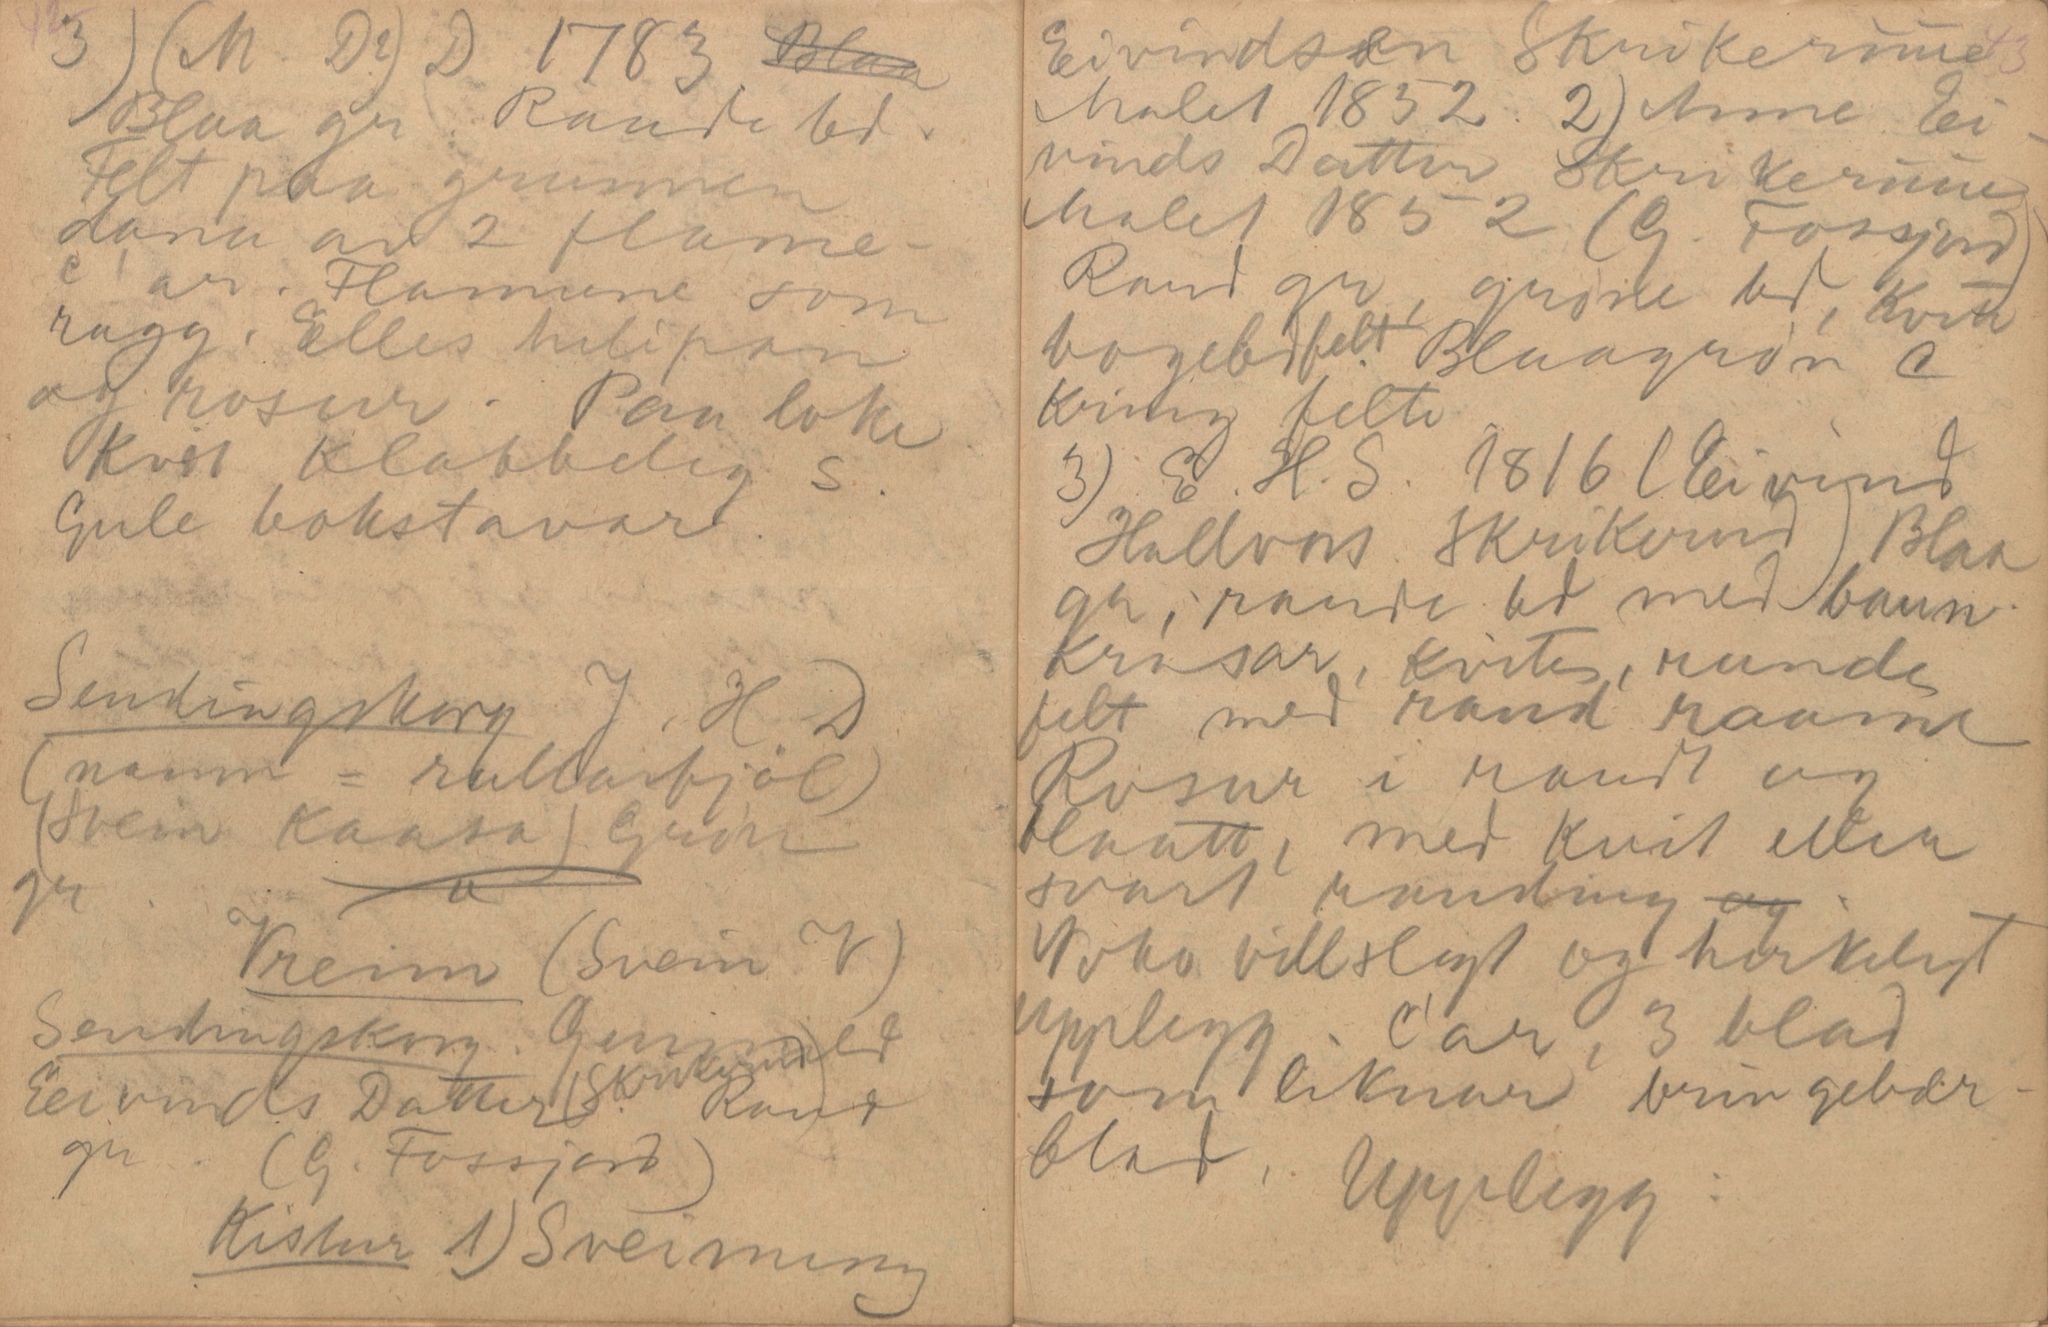 42
3) (M. D?) D 1783 Blaa
Blaa gr. Raude bd.
Felt paa grunnen
dana av 2 flame-
C'ar. Flamune som
ragg. Elles tulipan
og rosur. Paa loke
Kvit klabbeleg S.
Gule bokstavar.
Sendingskorg J. H. D
(namn = rullarfjöl)
(Svein Kaasa) Grön
gr.
Vreim (Svein V)
Sendingskorg. Gunnild
Eivinds Datter (Skrikerud) S. Raud
gr. (G. Fossjord)
Kistur 1) Sveinung
43
Eivindsen Skrikerune
Malet 1852. 2) Anne Ei-
vinds Datter Skrikerune
Malet 1852 (G. Fossjord)
Raud gr, gröne bd, Kvite
bogebdfelt. Blaagrön C
kring felti
3) E. H. S. 1816 (Eivind
Hallvors Skrikerud) Blaa
gr, raude bd med baun
krusar, kvite, runde
felt med raud raame
Rosur i raudt og
blaatt, med kvit eller
svart randing og.
Noko villslegt og herkelegt
upplegg. C'ar, 3 blad
som liknar bringebær-
blad. Upplegg: